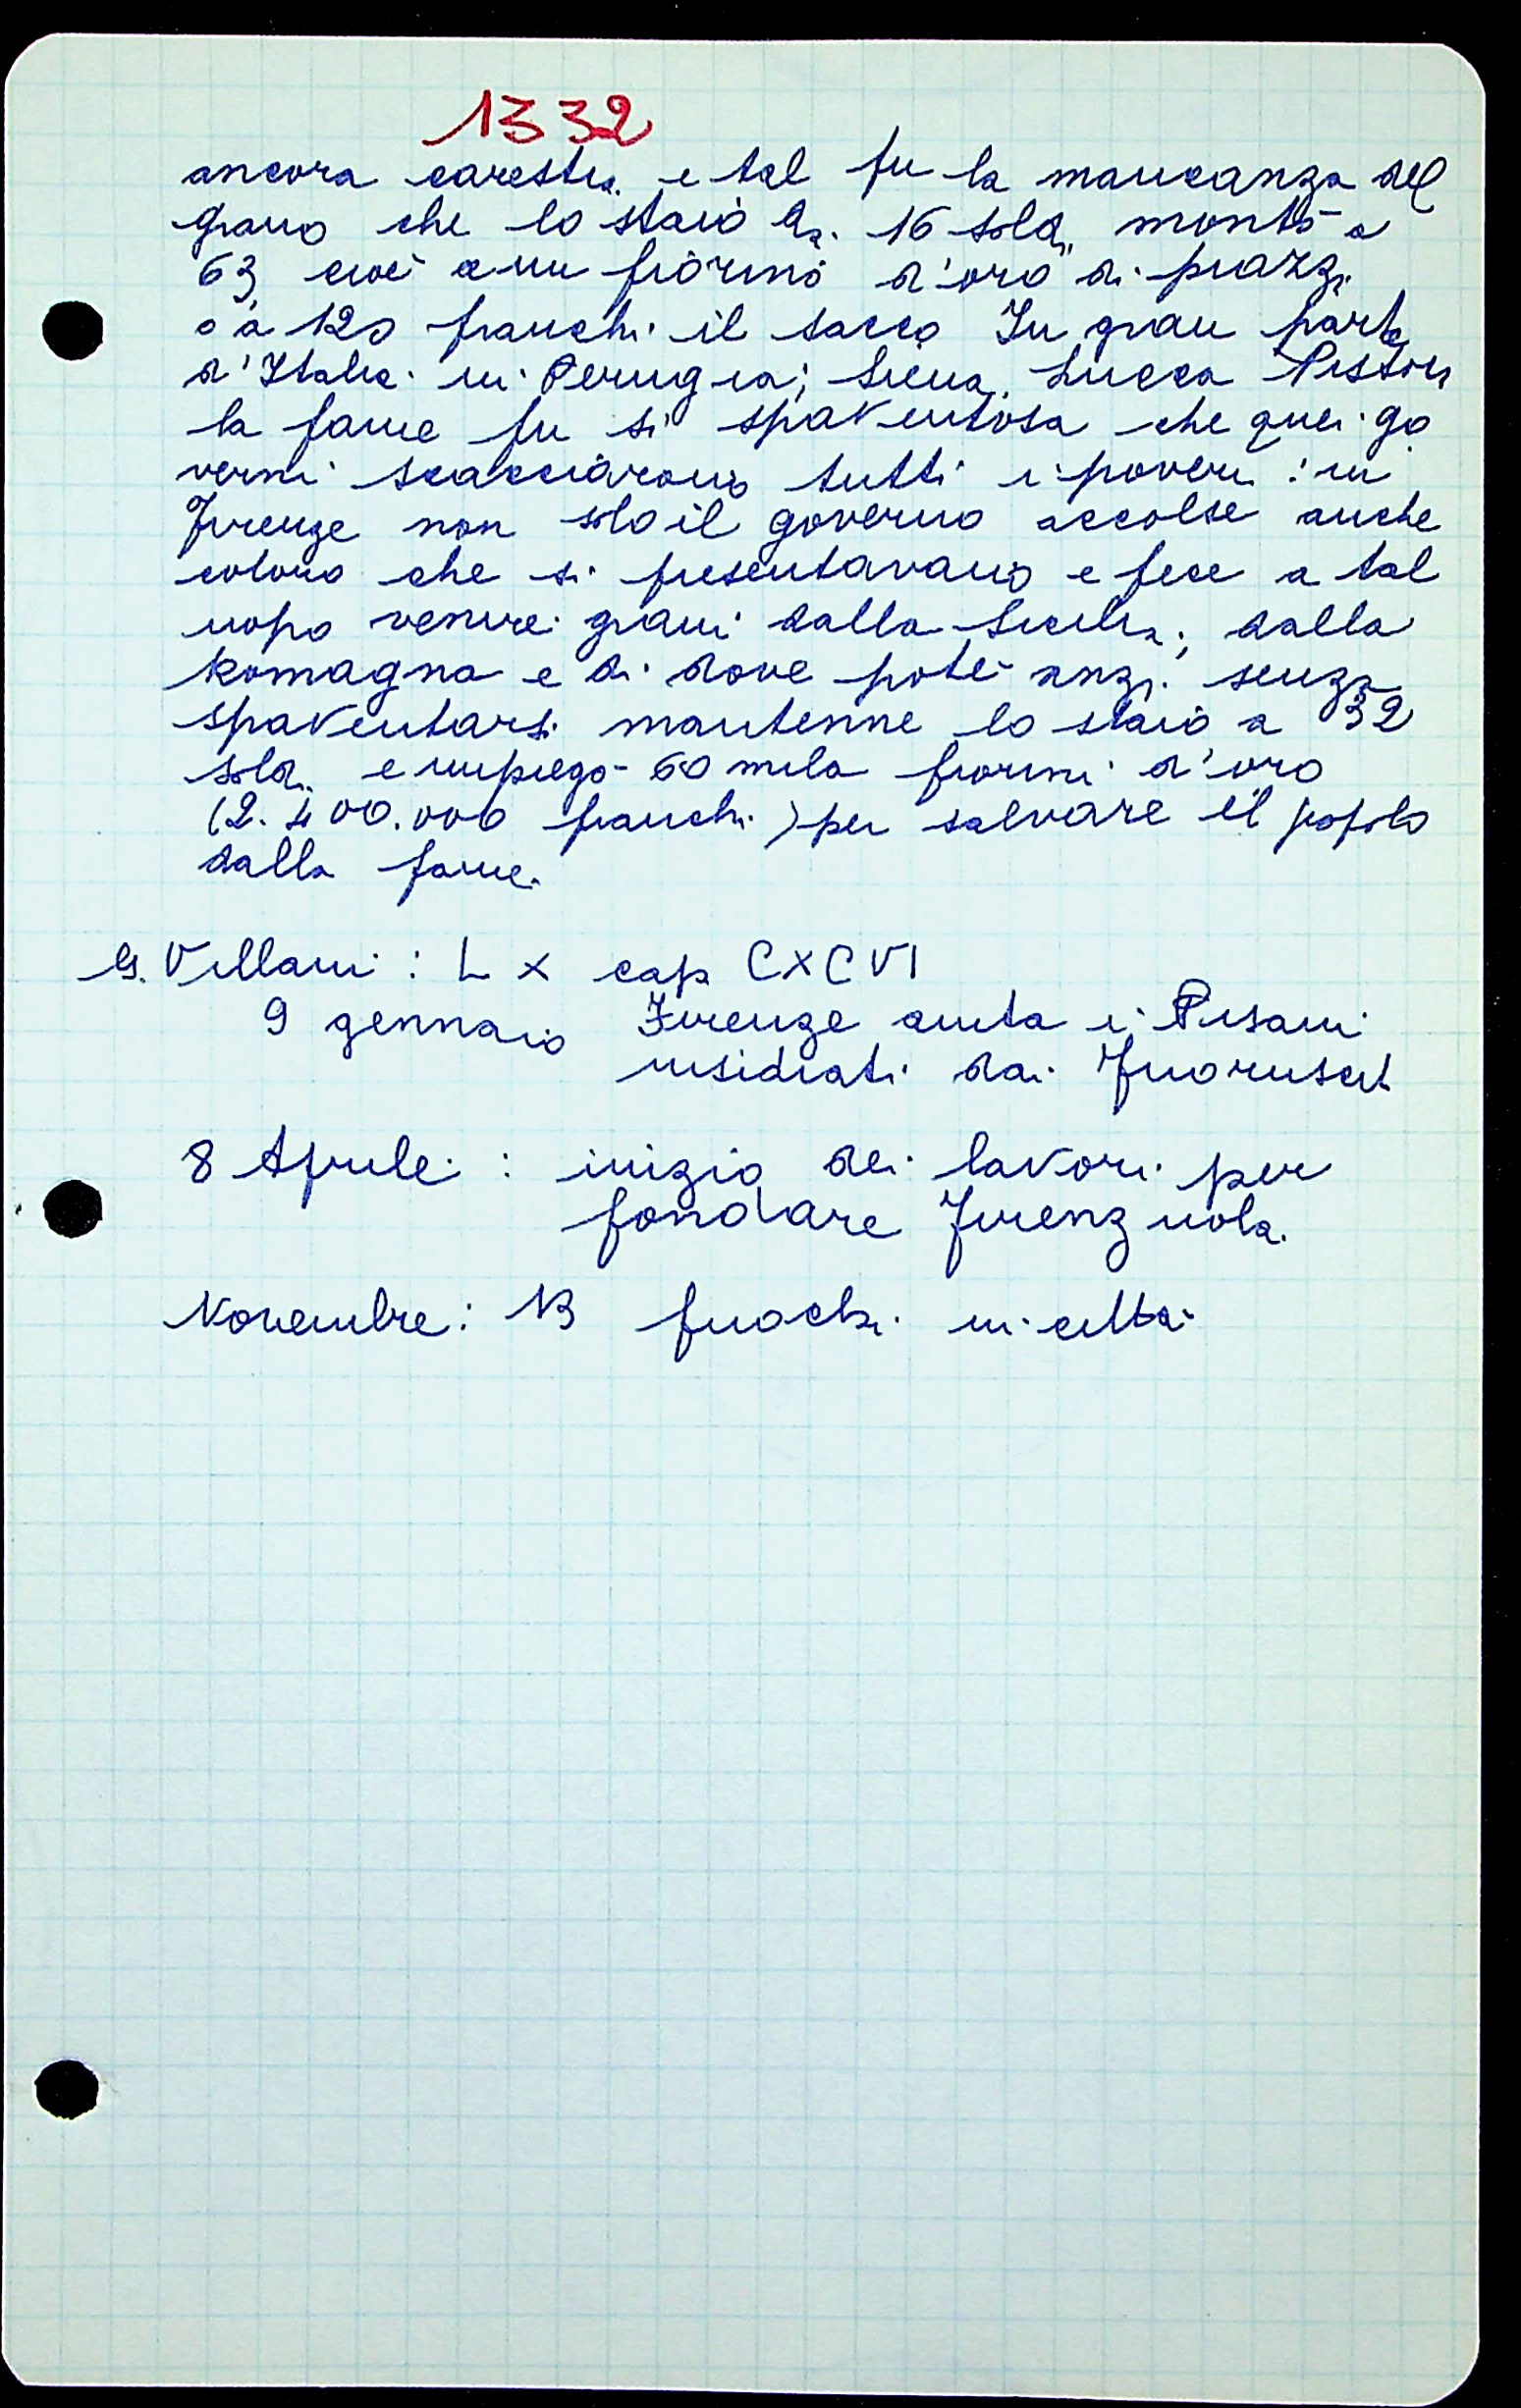 1332
ancora carestia e tal fu la mancanza del
grano che lo staio da 16 soldi montò a
63, cioè a un fiorino d'oro di piazza
o a 120 franchi il sacco In gran parte
d'Italia in Perugia, Siena, Lucca Pistoia
la fame fu sì spaventosa che quei go
verni scacciarono tutti i poveri: in
Firenze non solo il governo accolse anche
coloro che si presentavano e fece a tal
uopo venire grani dalla Sicilia, dalla
Romagna e di dove poté anzi senza
spaventarsi mantenne lo staio a 32
soldi e impiegò 60 mila fiorini d'oro
(2.400.000 franchi) per salvare il popolo
dalla fame.
G. Villani: L X cap CXCVI
9 gennaio Firenze aiuta i Pisani
insidiati dai Fuorusciti
8 Aprile: inizio dei lavori per
fondare Firenzuola.
Novembre: 13 fuochi in città